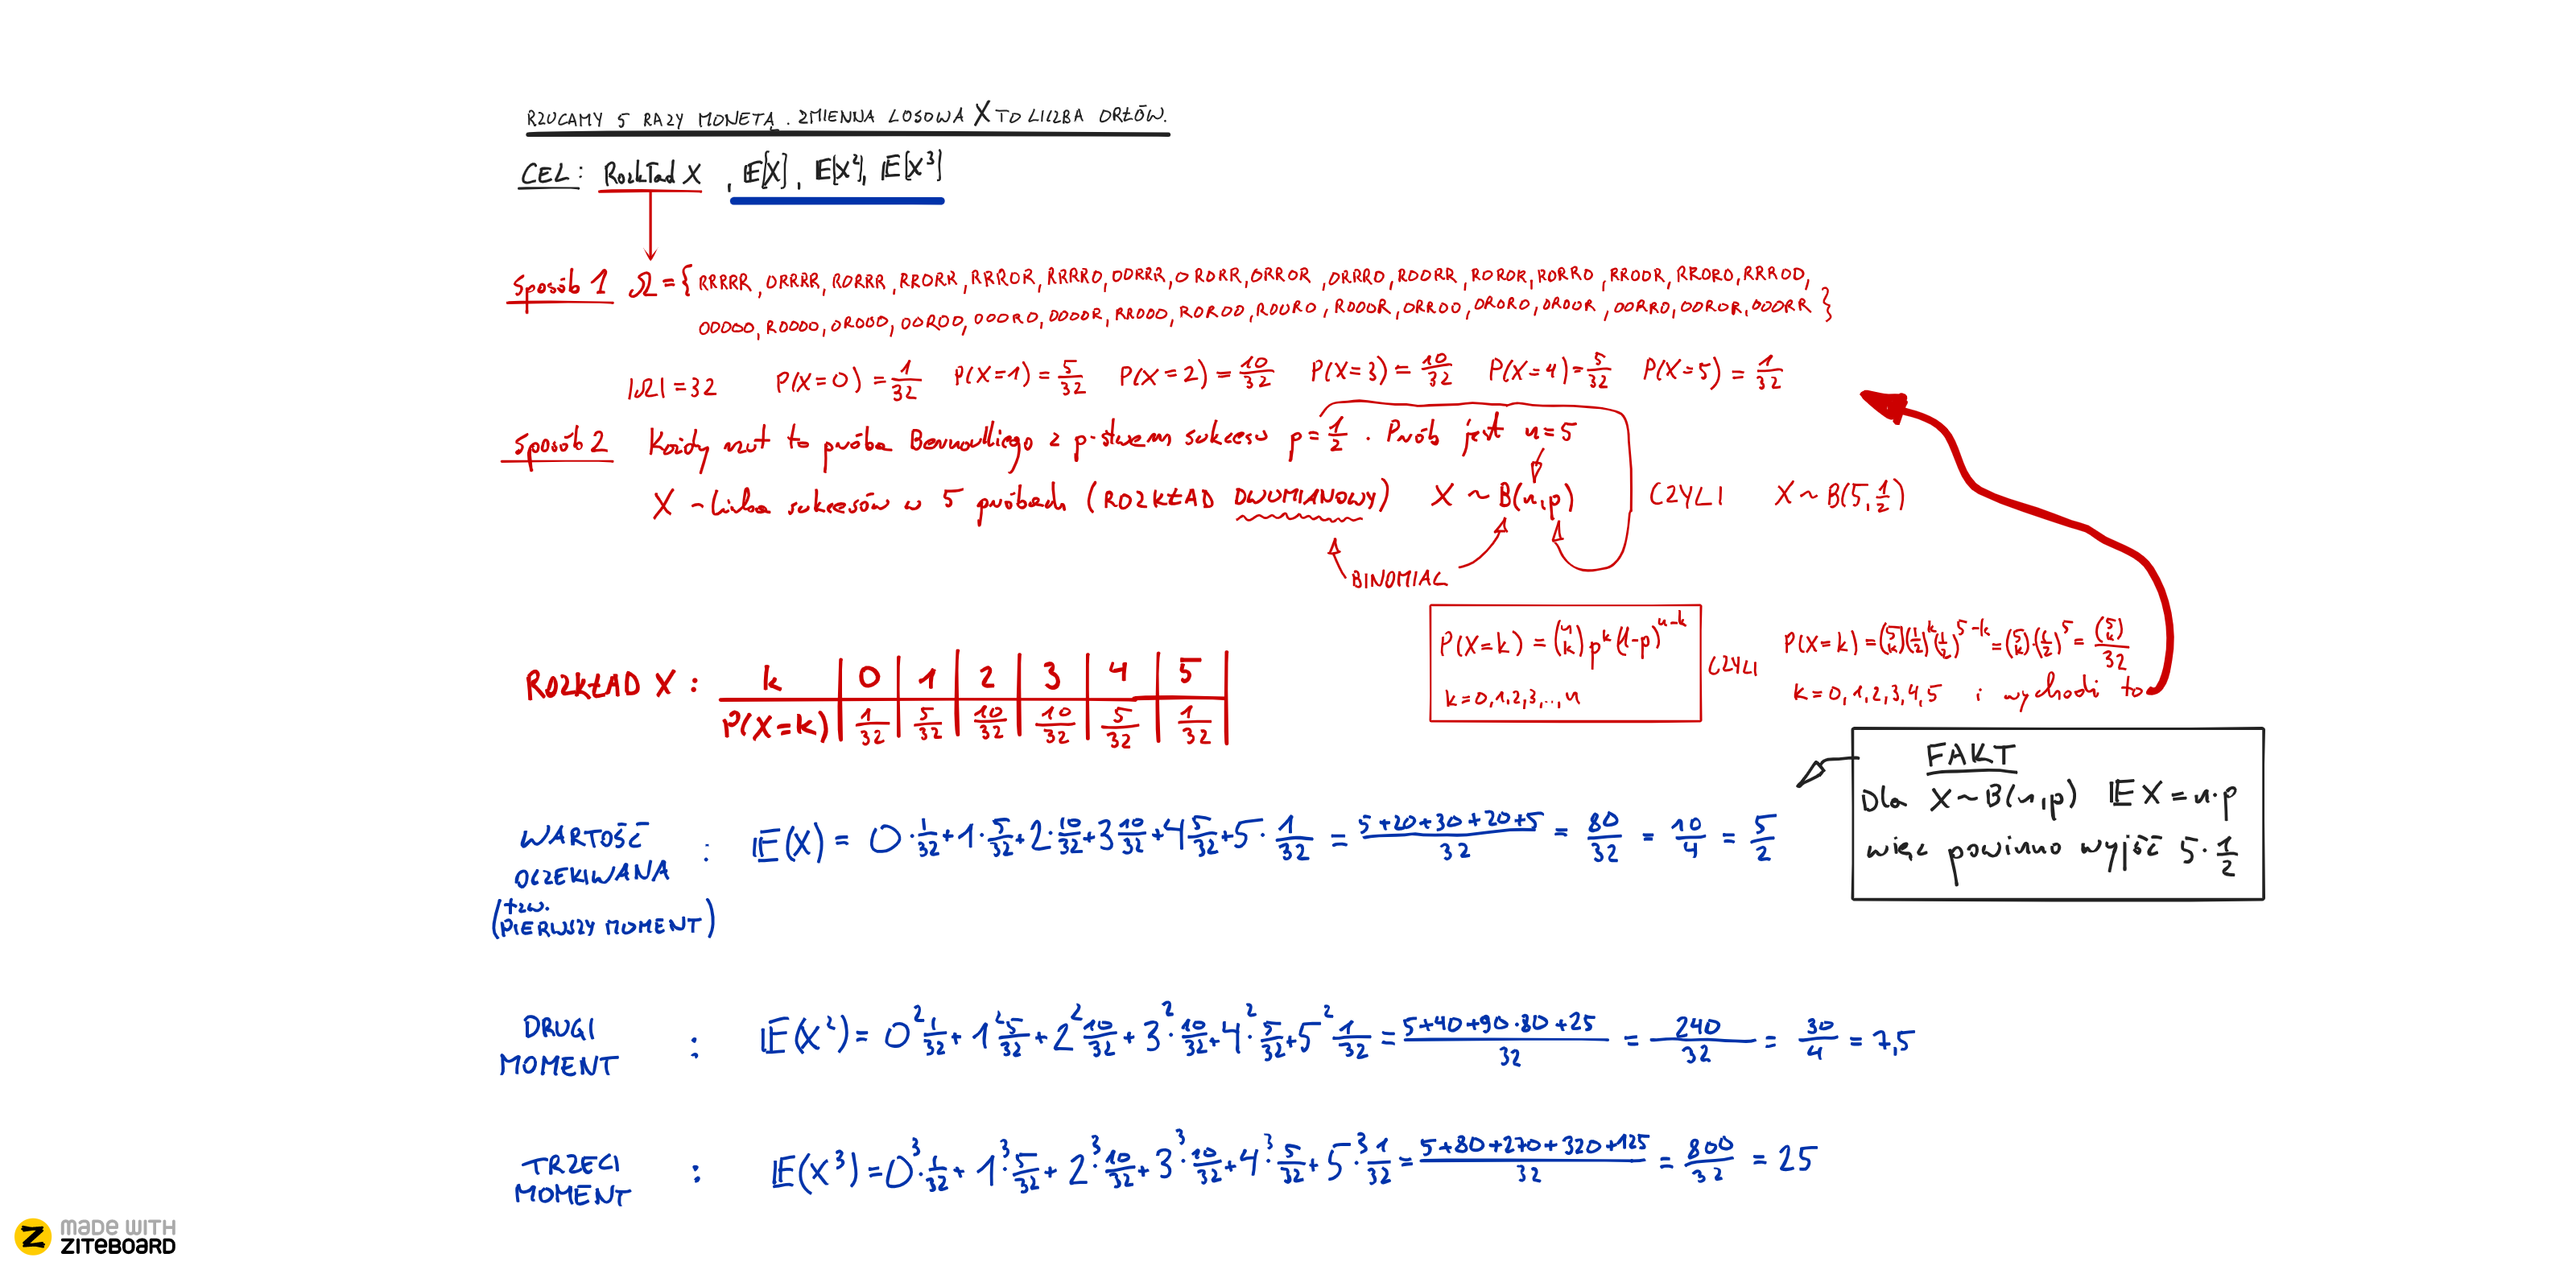 RZUCAMY 5 RAZY MONETĄ. ZMIENNA LOSOWA X TO LICZBA ORŁÓW.
CEL: Rozkład X, 𝔼[X], 𝔼[X²], 𝔼[X³]
Sposób 1 Ω = { RRRRR, ORRRR, RORRR, RRORR, RRROR, RRRRO, OORRR, ORORR, ORROR, ORRRO, ROORR, ROROR, RORRO, RROOR, RRORO, RRROO,
OOOOO, ROOOO, OROOO, OOROO, OOORO, OOOOR, RROOO, ROROO, ROORO, ROOOR, ORROO, ORORO, OROOR, OORRO, OOROR, OOORR }
|Ω| = 32 P(X=0) = 1/32 P(X=1) = 5/32 P(X=2) = 10/32 P(X=3) = 10/32 P(X=4) = 5/32 P(X=5) = 1/32
Sposób 2 Każdy rzut to próba Bernoulliego z p-stwem sukcesu p = 1/2. Prób jest n=5
X - liczba sukcesów w 5 próbach (ROZKŁAD DWUMIANOWY) X ~ B(n,p) CZYLI X ~ B(5, 1/2)
BINOMIAL
P(X=k) = (n k) p^k (1-p)^(n-k)
k = 0,1,2,3,..,n
CZYLI
P(X=k) = (5 k)(1/2)^k (1/2)^(5-k) = (5 k)·(1/2)^5 = (5 k)/32
k = 0,1,2,3,4,5 i wychodzi to
ROZKŁAD X: k | 0 | 1 | 2 | 3 | 4 | 5 |
P(X=k) | 1/32 | 5/32 | 10/32 | 10/32 | 5/32 | 1/32 |
FAKT
Dla X ~ B(n,p) 𝔼X = n·p
więc powinno wyjść 5·1/2
WARTOŚĆ
OCZEKIWANA
(tzw.
PIERWSZY MOMENT)
: 𝔼(X) = 0·1/32 + 1·5/32 + 2·10/32 + 3 10/32 + 4 5/32 + 5·1/32 = (5+20+30+20+5)/32 = 80/32 = 10/4 = 5/2
DRUGI
MOMENT
: 𝔼(X²) = 0² 1/32 + 1² 5/32 + 2² 10/32 + 3²·10/32 + 4²·5/32 + 5² 1/32 = (5+40+90·80+25)/32 = 240/32 = 30/4 = 7,5
TRZECI
MOMENT
: 𝔼(X³) = 0³·1/32 + 1³·5/32 + 2³·10/32 + 3³·10/32 + 4³·5/32 + 5³·1/32 = (5+80+270+320+125)/32 = 800/32 = 25
MADE WITH
ZITEBOARD